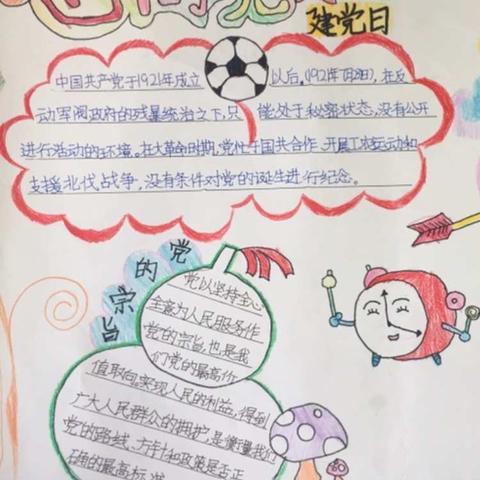 建党日
中国共产党于1921年成立以后。(1921年7月23日),在反
动军阀政府的残暴统治之下,只能处于秘密状态,没有公开
进行活动的环境。在大革命时期,党忙于国共合作、开展工农运动和
支援北伐战争,没有条件对党的诞生进行纪念。
党的宗旨
党以坚持全心
全意为人民服务作
党的宗旨,也是我
们党的最高价
值取向。实现人民的利益,得到
广大人民群众的拥护,是衡量我们
党的路线、方针和政策是否正
确的最高标准